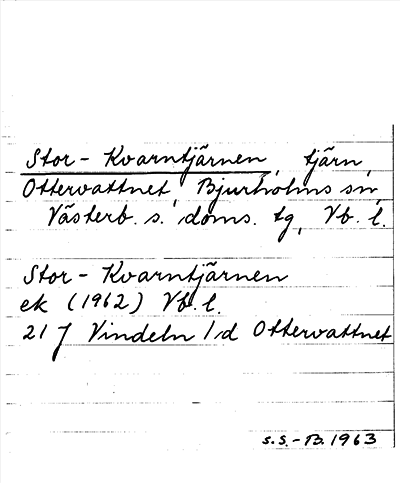 Stor-Kvarntjärnen, tjärn,
Ottervattnet, Bjurholms sn,
Västerb. s. doms. tg, Vb. l.
Stor-Kvarntjärnen
ek (1962) Vb. l.
21 J Vindeln 1d Ottervattnet
S.S.-B. 1963